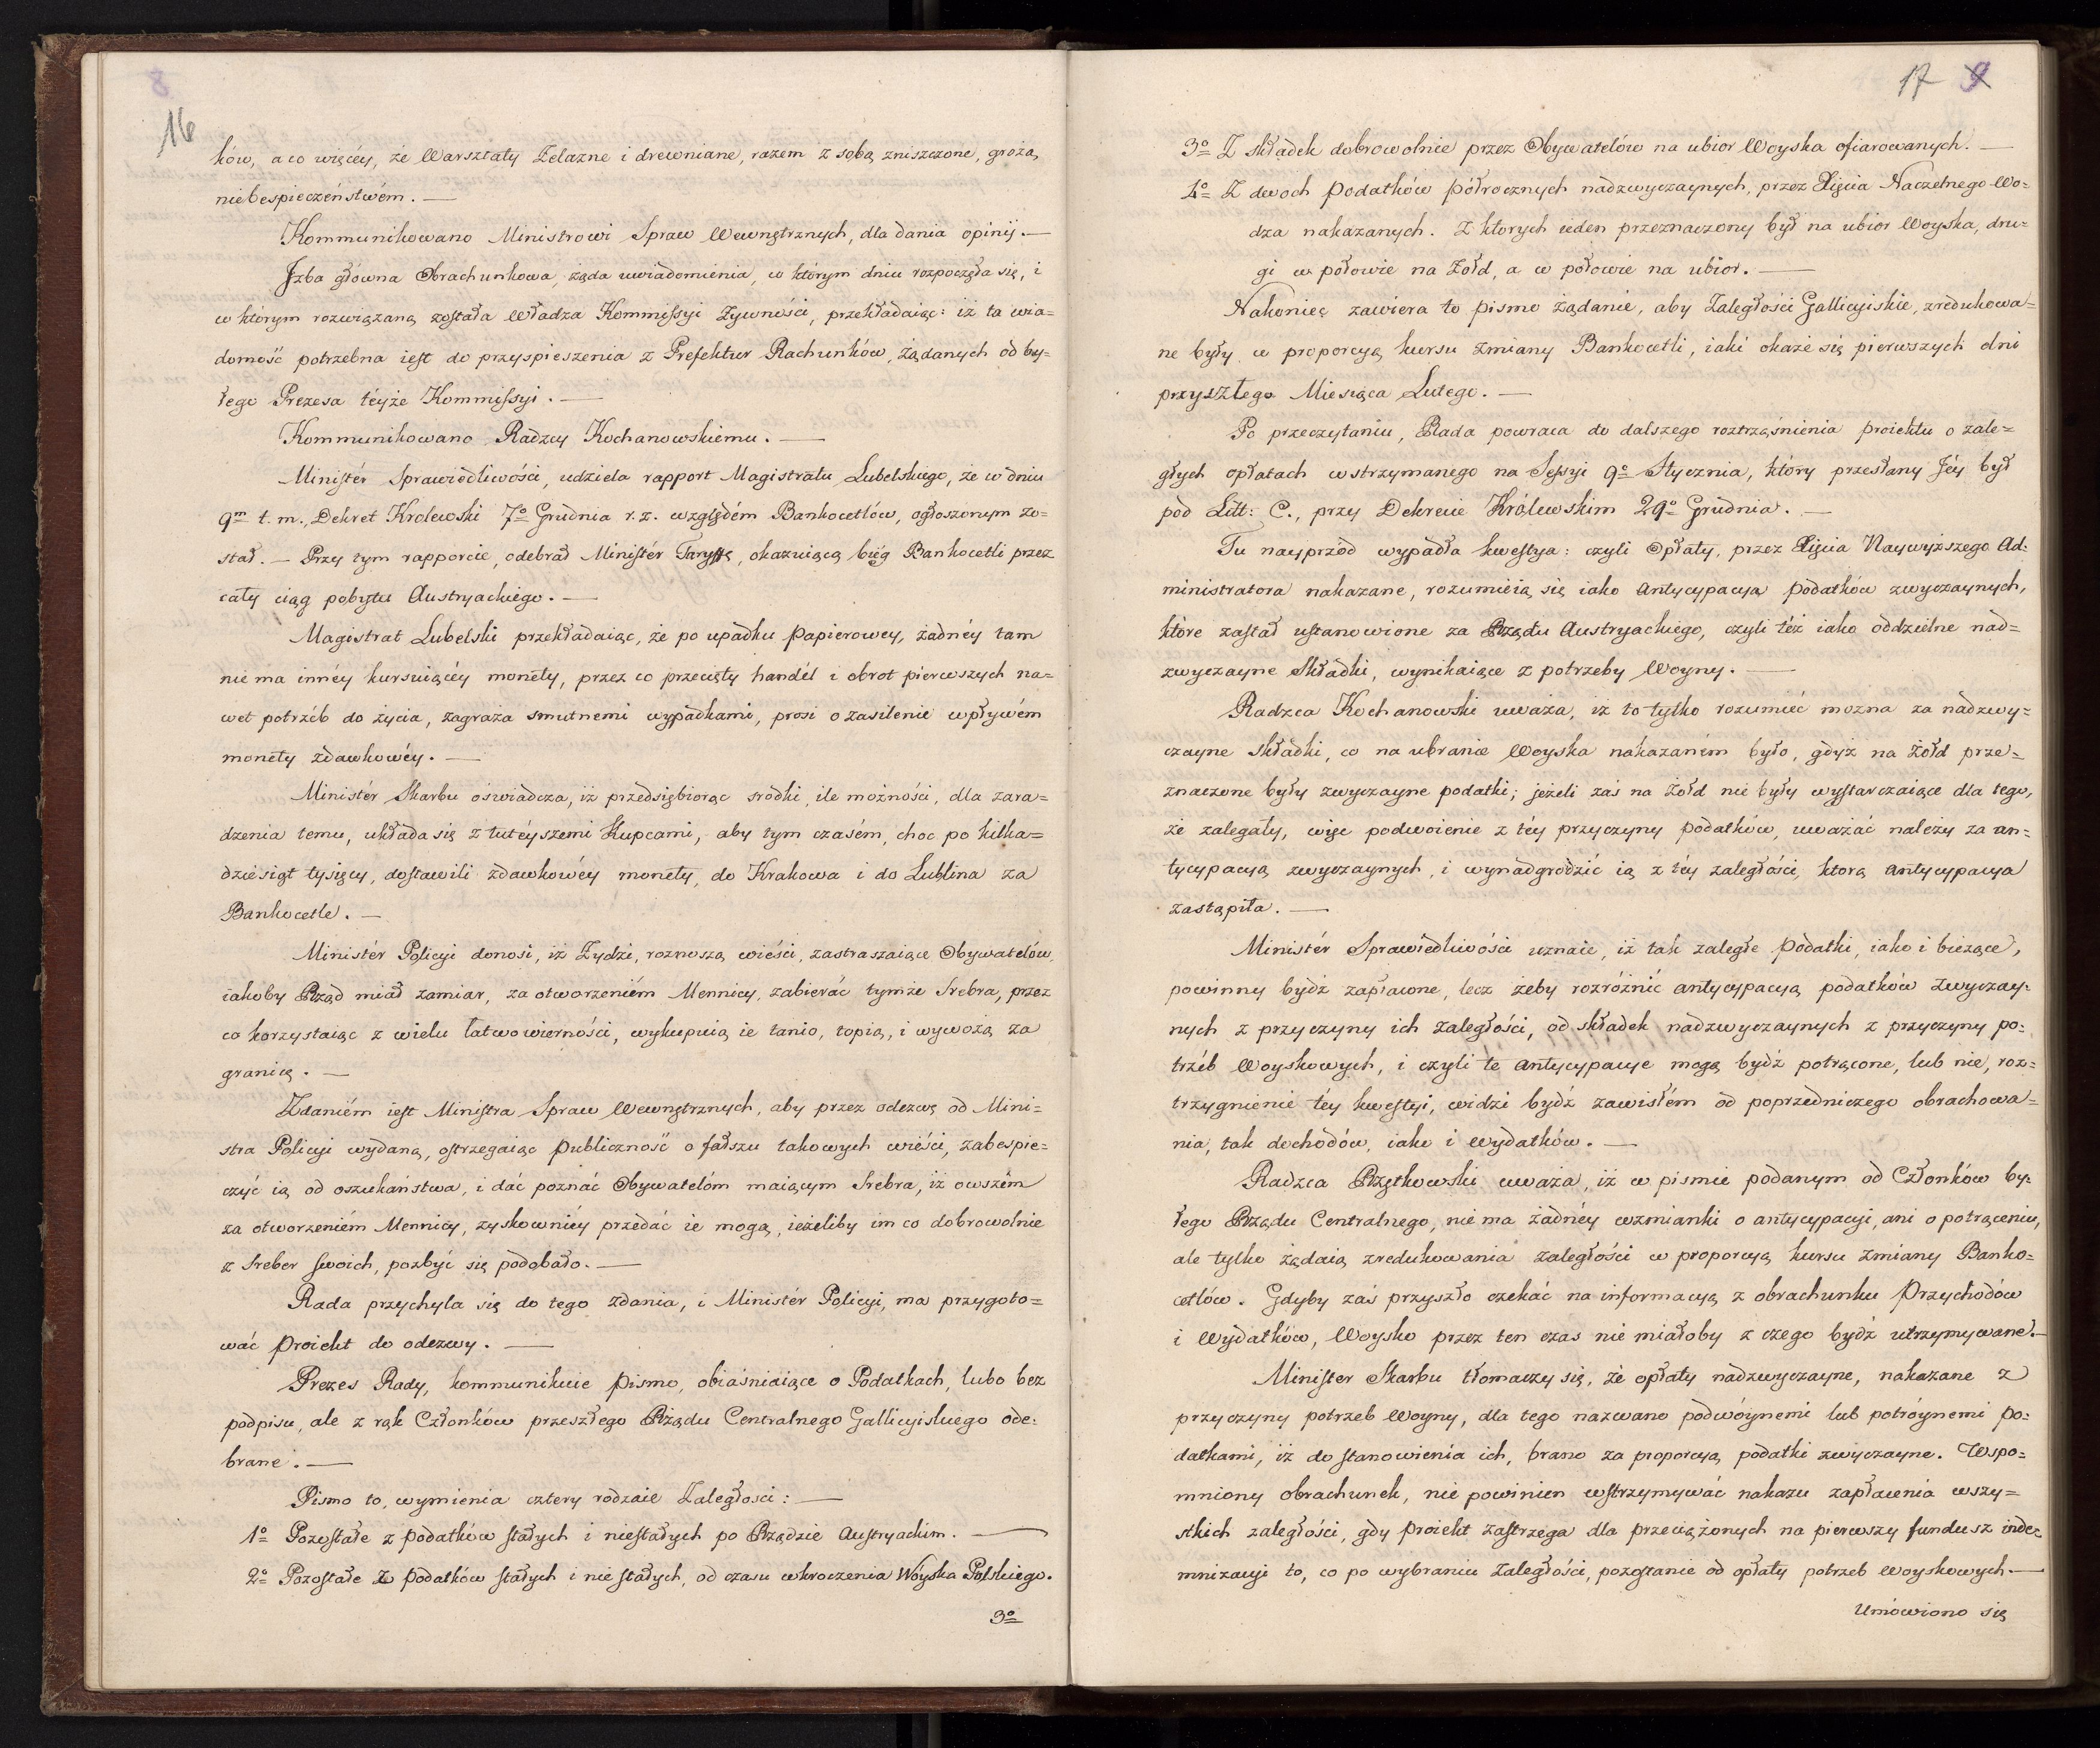 16
ków, a co więcéy, że Warsztaty Żelazne i drewniane, razem z sobą zniszczone, grożą
niebespieczeństwém. —
Kommunikowano Ministrowi Spraw Wewnętrznych, dla dania opinij. —
Jzba główna Obrachunkowa, żąda uwiadomienia, w którym dniu rozpoczęła się, i
w którym rozwiązaną została Władza Kommissyi Żywności, przekładaiąc: iż ta wia=
domość potrzebna iest do przyspieszenia z Prefektur Rachunków, żądanych od by=
łego Prezesa téyże Kommissyi. —
Kommunikowano Radzcy Kochanowskiemu. —
Ministér Sprawiedliwości, udziela rapport Magistratu Lubelskiego, że w dniu
9m t. m., Dekret Krolewski 7o Grudnia r. z. względém Bankocetlów, ogłoszonym zo=
stał. — Przy tym rapporcie, odebrał Ministér Taryffę, okazuiącą biég Bankocetli przez
cały ciąg pobytu Austryackiego. —
Magistrat Lubelski przekładaiąc, że po upadku papierowey, żadnéy tam
nie ma innéy kursuiącéy monety, przez co przecięty handél i obrot pierwszych na=
wet potrzéb do życia, zagraża smutnemi wypadkami, prosi o zasilenie wpływém
monety zdawkowéy. —
Ministér Skarbu oświadcza, iż przedsiębiorąc srodki, ile możności, dla zara=
dzenia temu, układa się z tutéyszemi Kupcami, aby tym czasém, choc po kilka=
dziesiąt tysięcy, dostawili zdawkowéy monety, do Krakowa i do Lublina za
Bankocetle. —
Ministér Policyi donosi, iż Żydzi, roznoszą wieści, zastraszaiące Obywatelów,
iakoby Rząd miał zamiar, za otworzeniém Mennicy, zabierać tymże Srebra, przez
co korzystaiąc z wielu łatwowierności, wykupuią ie tanio, topią, i wywożą za
granicę. —
Zdaniém iest Ministra Spraw Wewnętrznych, aby przez odezwę od Mini=
stra Policyi wydaną, ostrzegaiąc Publiczność o fałszu takowych wieści, zabespie=
czyć ią od oszukaństwa, i dać poznać Obywatelóm maiącym Srebra, iż owszém
za otworzeniém Mennicy, zyskowniéy przedać ie mogą, ieżeliby im co dobrowolnie
z Sreber swoich, pozbyć się podobało. —
Rada przychyla się do tego zdania, i Ministér Policyi, ma przygoto=
wać proiekt do odezwy. —
Prezes Rady, kommunikuie pismo, obiaśniaiące o Podatkach, lubo bez
podpisu, ale z rąk Członków przeszłego Rządu Centralnego Gallicyiskiego ode=
brane. —
Pismo to, wymienia cztery rodzaie Zaległosci: —
1o Pozostałe z podatków stałych i niestałych po Rządzie Austryackim. —
2o Pozostałe z podatków stałych i nie stałych, od czasu wkroczenia Woyska Polskiego.
3o
17 9
3o Z składek dobrowolnie przez Obywatelów na ubior Woyska ofiarowanych. —
4o Z dwoch podatków półrocznych nadzwyczaynych, przez Xięcia Naczelnego Wo=
dza nakazanych. Z ktorych ieden przeznaczony był na ubior Woyska, dru=
gi w połowie na Żołd, a w połowie na ubior. —
Nakoniec zawiera to pismo żądanie, aby Zaległości Gallicyiskie, zredukowa=
ne były w proporcyą kursu zmiany Bankocetli, iaki okaże się pierwszych dni
przyszłego Miesiąca Lutego. —
Po przeczytaniu, Rada powraca do dalszego roztrząśnienia proiektu o zale=
głych opłatach wstrzymanego na Sessyi 9o Stycznia, który przesłany Jéy był
pod Litt: C., przy Dekrecie Królewskim 29o Grudnia. —
Tu nayprzód wypadła kwestya: czyli Opłaty, przez Xięcia Naywyższego Ad=
ministratora nakazane, rozumieią się iako antycypacya podatków zwyczaynych,
które zastał ustanowione za Rządu Austryackiego, czyli też iako oddzielne nad=
zwyczayne Składki, wynikaiące z potrzeby Woyny. —
Radzca Kochanowski uważa, iż to tylko rozumieć można za nadzwy=
czayne składki, co na ubranie Woyska nakazaném było, gdyż na żołd prze=
znaczone były zwyczayne podatki; jeżeli zaś na żołd nie były wystarczaiące dla tego,
że zalegały, więc podwoienie z téy przyczyny podatków, uważać należy za an=
tycypacyą zwyczaynych, i wynadgrodzić ią z téy zaległości, ktorą antycypacya
zastąpiła. —
Ministér Sprawiedliwości uznaie, iż tak zaległe podatki, iako i bieżące,
powinny bydź zapłacone, lecz żeby rozróżnić antycypacyą podatków zwyczay=
nych z przyczyny ich zaległości, od składek nadzwyczaynych z przyczyny po=
trzéb Woyskowych, i czyli te antycypacye mogą bydź potrącone, lub nie, roz=
trzygnienie téy kwestyi, widzi bydź zawisłém od poprzedniczego obrachowa=
nia, tak dochodów, iako i wydatków. —
Radzca Rzętkowski uważa, iż w pismie podanym od Członków by=
łego Rządu Centralnego, nie ma żadnéy wzmianki o antycypacyi, ani o potrąceniu,
ale tylko żądaią zredukowania zaległości w proporcyą kursu zmiany Banko=
cetlów. Gdyby zaś przyszło czekać na informacyą z obrachunku Przychodów
i Wydatków, Woysko przez ten czas nie miałoby z czego bydź utrzymywane. —
Minister Skarbu tłomaczy się, że opłaty nadzwyczayne, nakazane z
przyczyny potrzeb Woyny, dla tego nazwano podwóynemi lub potróynemi po=
datkami, iż do stanowienia ich, brano za proporcyą podatki zwyczayne. Wspo=
mniony obrachunek, nie powinien wstrzymywać nakazu zapłacenia wszy=
stkich zaległości, gdy proiekt zastrzega dla przeciążonych na pierwszy fundusz inde=
mnizacyi to, co po wybraniu Zaległości, pozostanie od opłaty potrzeb Woyskowych. —
Umówiono się